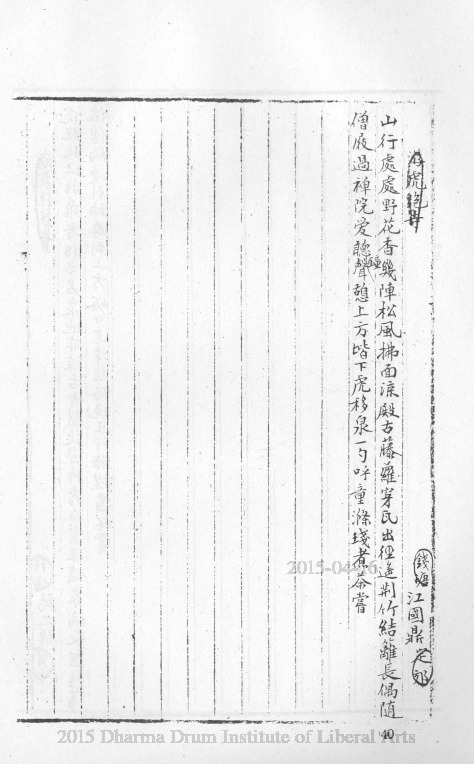 虎跑
錢塘江國鼎定郎
山行處處野花香幾陣松風拂面涼殿古藤蘿穿瓦出徑遙荆竹結籬長偶隨
僧屐過禪院爱聽鐘聲憩上方堦下虎移泉一勺呼童滌琖煮茶嘗
2015-04-16
40
2015 Dharma Drum Institute of Liberal Arts